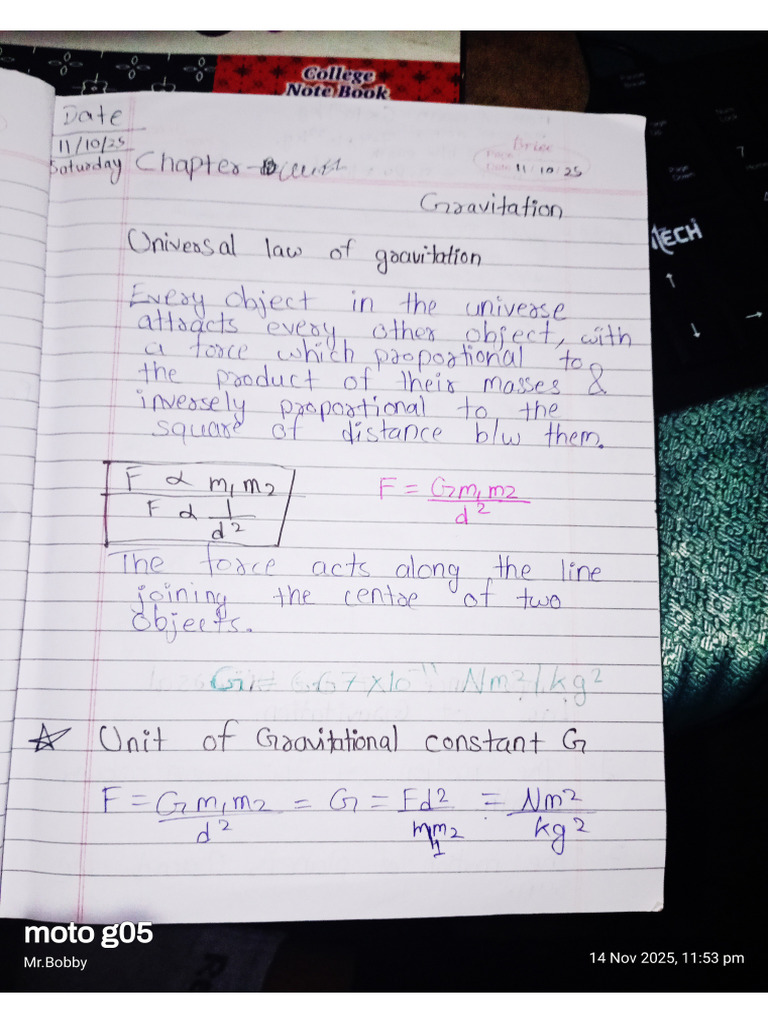 College
Note Book
Date
11/10/25
Saturday
Chapter-
Date 11/10/25
Gravitation
Universal law of gravitation
Every object in the universe
attracts every other object, with
a force which proportional to
the product of their masses &
inversely proportional to the
square of distance b/w them.
F ∝ m1 m2
F ∝ 1/d2
F = Gm1m2/d2
The force acts along the line
joining the centre of two
objects.
G = 6.67×10-11 Nm2/kg2
☆ Unit of Gravitational constant G
F = Gm1m2/d2 = G = Fd2/m1m2 = Nm2/kg2
TECH
moto g05
Mr.Bobby
14 Nov 2025, 11:53 pm